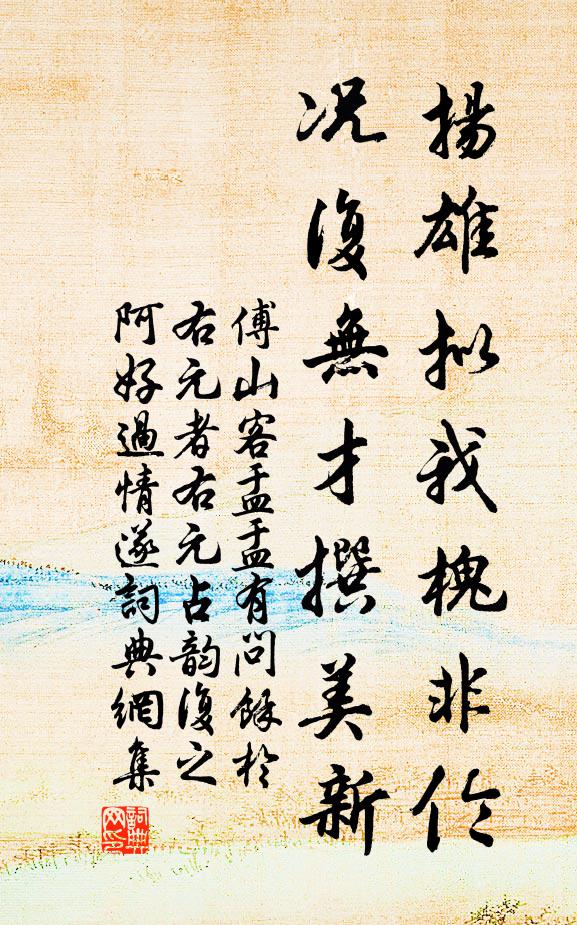 揚雄拟我槐非伦
况復無才撰美新
傅山客盂盂有问餘於
右元者右元占韵復之
阿好過情遂詞典網集
詞典